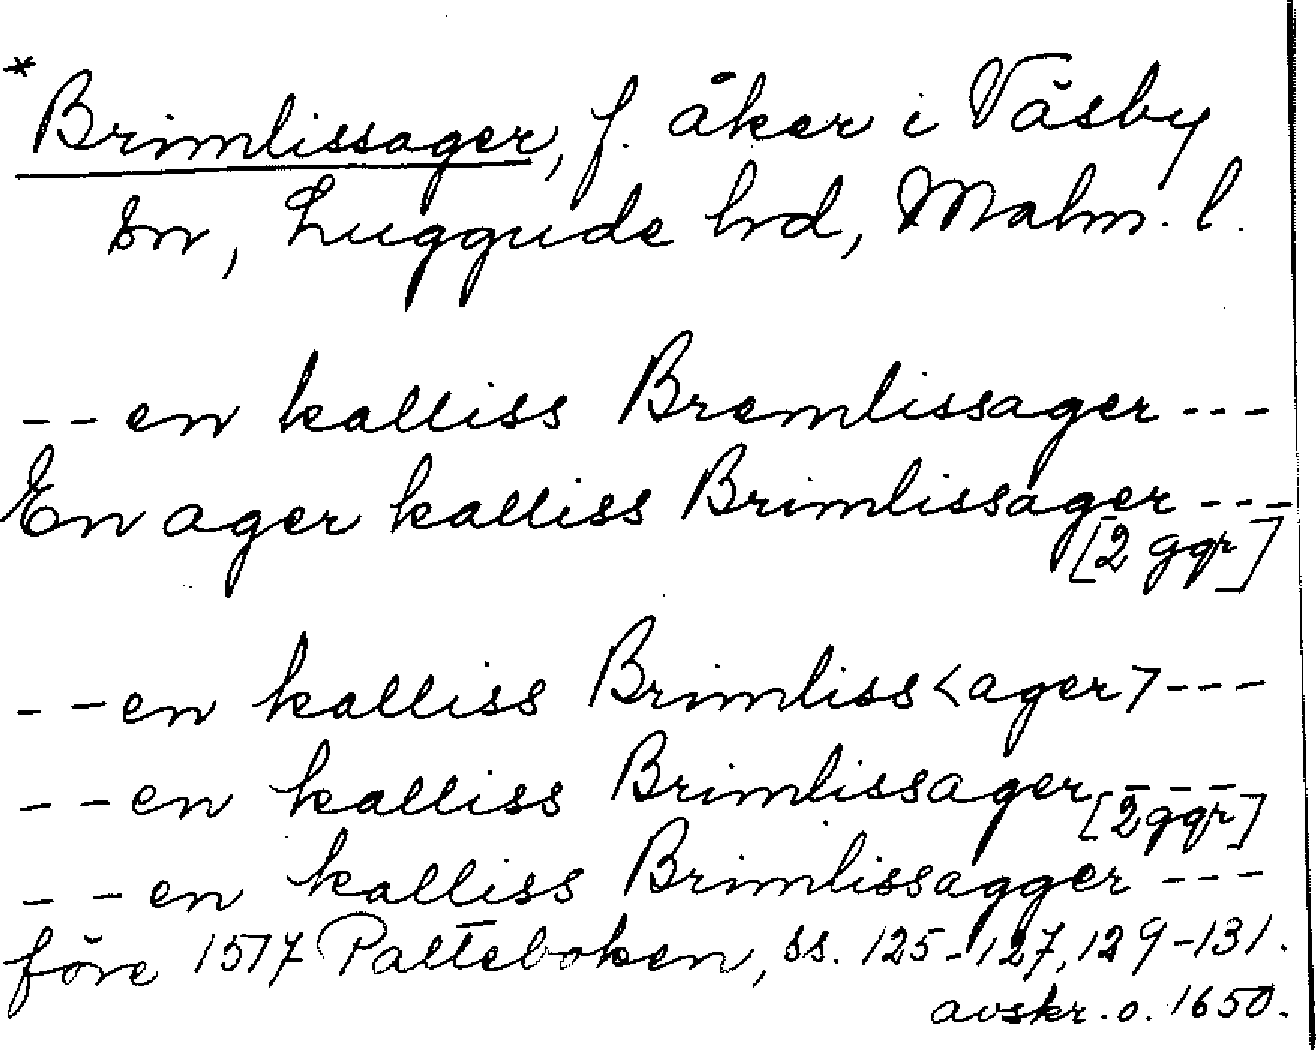 * Brimlissager, f. åker i Väsby
sn, Luggude hd, Malm. l.
-- en kalliss Bremlissager ---
En ager kalliss Brimlissager ---
[2 ggr]
-- en kalliss Brimliss<ager> ---
-- en kalliss Brimlissager ---
[2 ggr]
-- en kalliss Brimlissagger ---
före 1517 Palteboken, ss. 125-127, 129-131.
avskr. o. 1650.